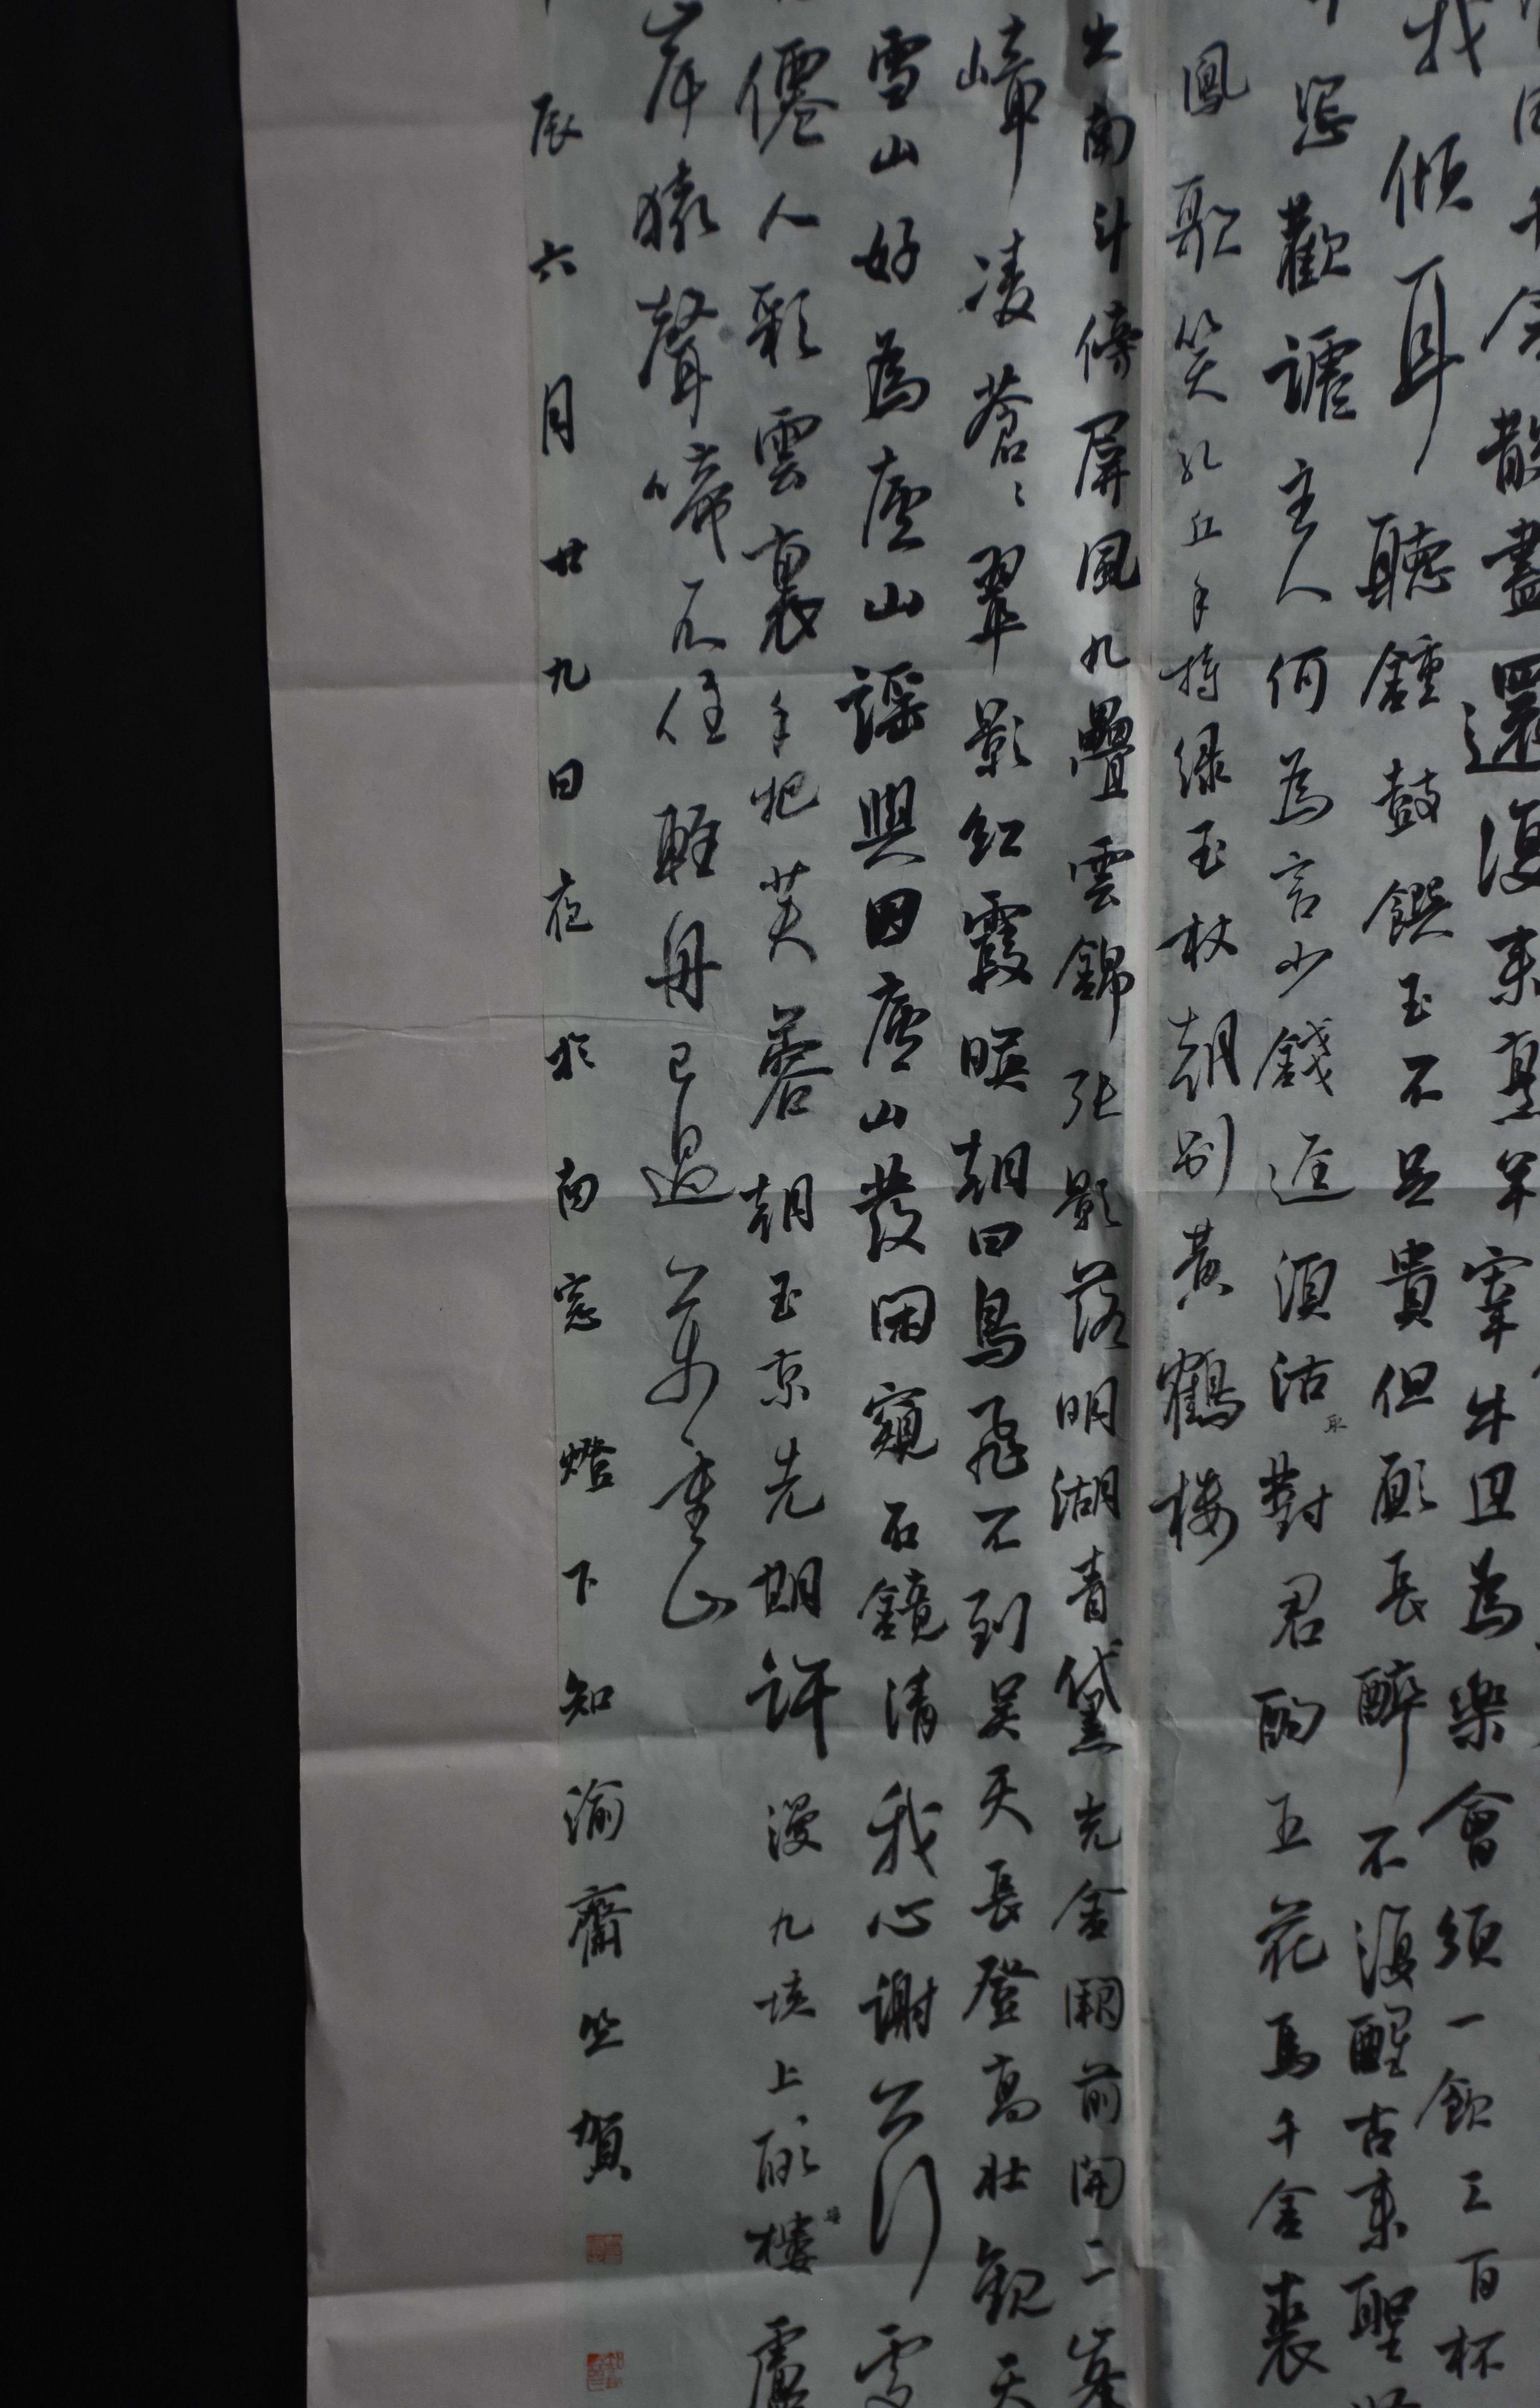 回千金散盡還復來烹羊宰牛且為樂會須一飲三百杯
我傾耳聽鍾鼓饌玉不足貴但願長醉不復醒古來聖
恣歡謔主人何為言少錢逕須沽取對君酌五花馬千金裘
鳳歌笑孔丘手持緑玉杖朝別黃鶴樓
出南斗傍屏風九疊雲錦張影落明湖青黛光金闕前開二峯
嶂凌蒼〻翠影紅霞映朝日鳥飛不到吴天長登高壯觀天
雪山好為廬山謡興因廬山發閑窺石鏡清我心謝公行處
僊人彩雲裏手把芙蓉朝玉京先期漫九垓上許接盧
岸猿聲啼不住輕舟已過萬重山
辰六月廿九日夜於南窓燈下知渝齋 賀